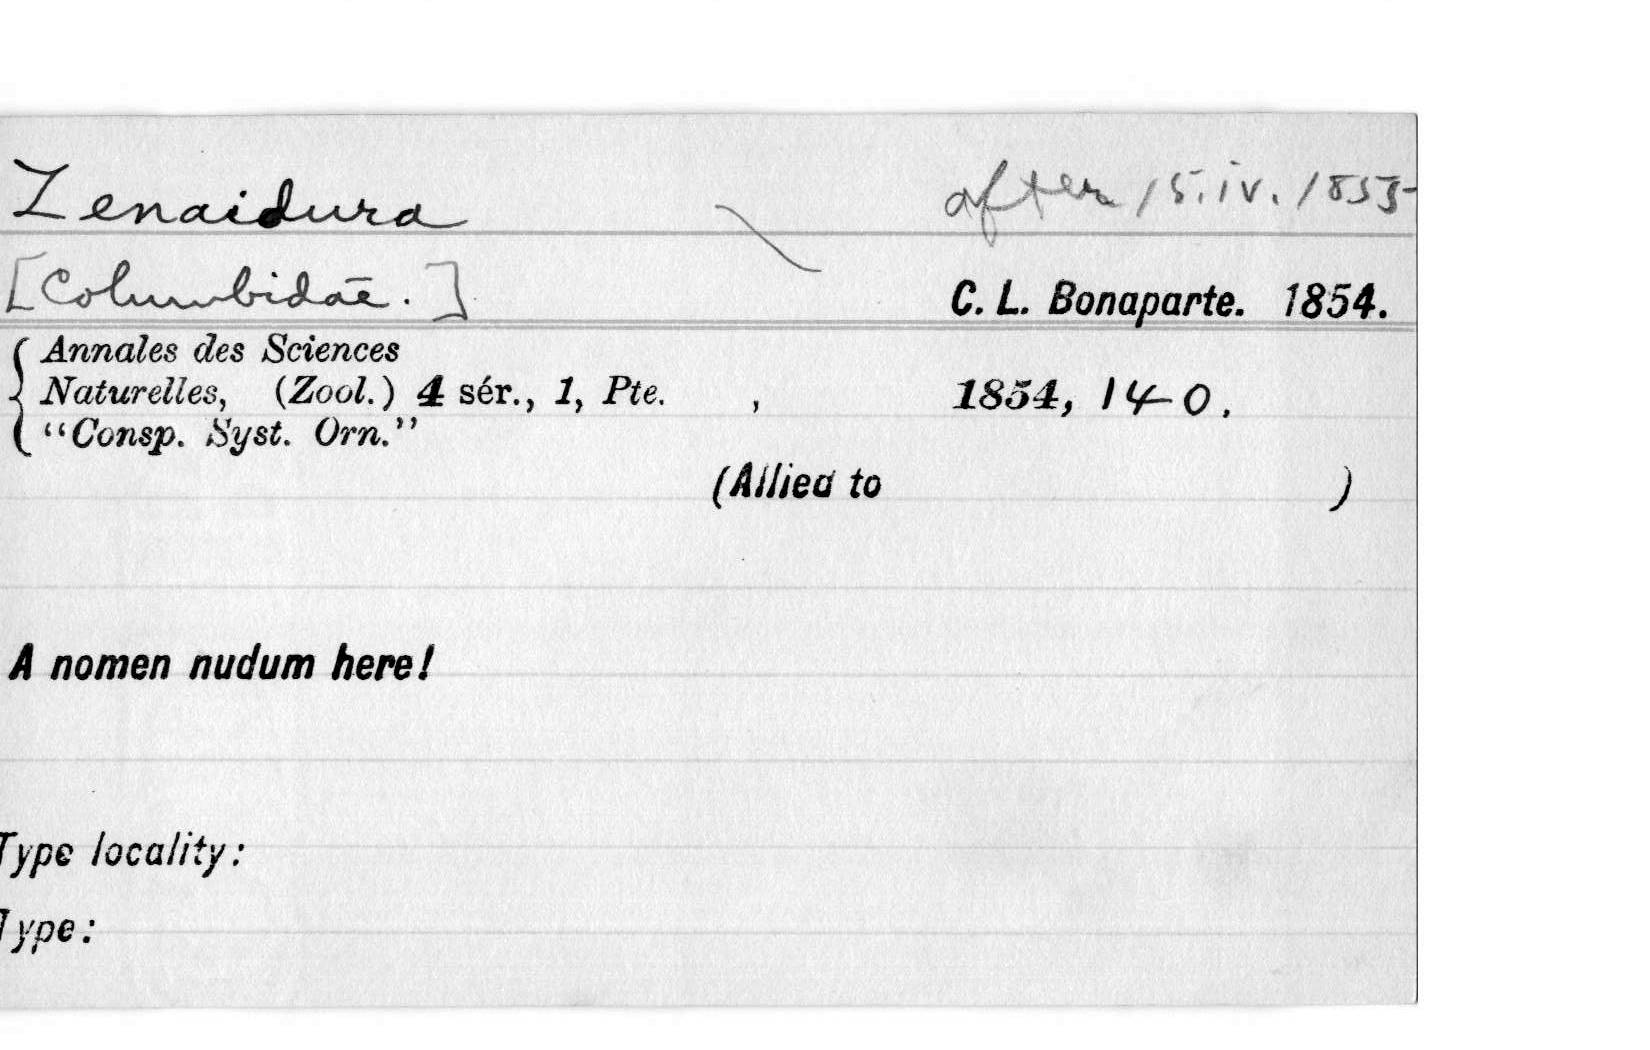 Zenaidura after 15.iv.1855
[Columbidae.] C. L. Bonaparte. 1854.
Annales des Sciences
Naturelles, (Zool.) 4 sér., 1, Pte. , 1854, 140.
"Consp. Syst. Orn."
(Allied to )
A nomen nudum here!
Type locality:
Type: